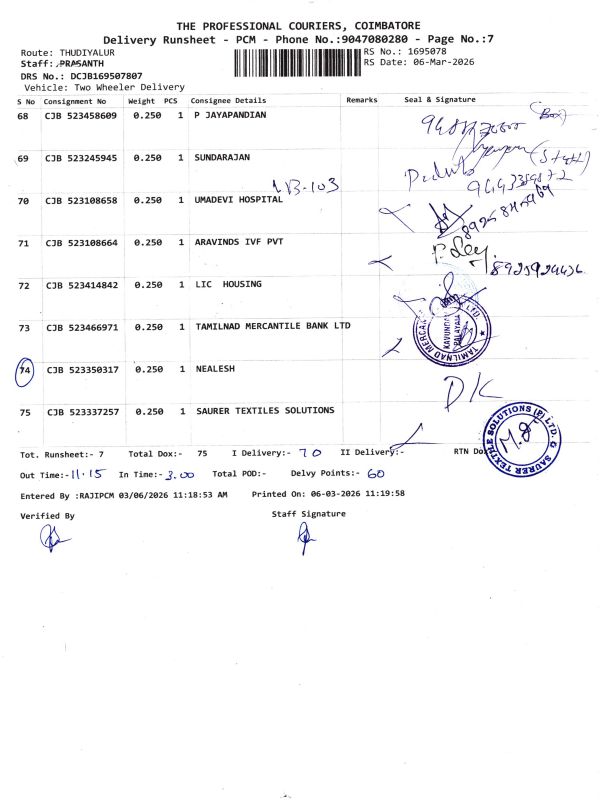 THE PROFESSIONAL COURIERS, COIMBATORE
Delivery Runsheet - PCM - Phone No.:9047080280 - Page No.:7
Route: THUDIYALUR
RS No.: 1695078
Staff: PRASANTH
RS Date: 06-Mar-2026
DRS No.: DCJB169507807
Vehicle: Two Wheeler Delivery
S No Consignment No Weight PCS Consignee Details Remarks Seal & Signature
68 CJB 523458609 0.250 1 P JAYAPANDIAN
(Box)
69 CJB 523245945 0.250 1 SUNDARAJAN
(Staff)
NB-103
70 CJB 523108658 0.250 1 UMADEVI HOSPITAL
71 CJB 523108664 0.250 1 ARAVINDS IVF PVT
8925924436
72 CJB 523414842 0.250 1 LIC HOUSING
73 CJB 523466971 0.250 1 TAMILNAD MERCANTILE BANK LTD
TAMILNAD MERCANTILE
KAVUNDAM
PALAYAM
74 CJB 523350317 0.250 1 NEALESH
DK
75 CJB 523337257 0.250 1 SAURER TEXTILES SOLUTIONS
SAURER TEXTILE SOLUTIONS (P) LTD.
Tot. Runsheet:- 7 Total Dox:- 75 I Delivery:- 70 II Delivery:- RTN Dox
Out Time:- 11.15 In Time:- 3.00 Total POD:- Delvy Points:- 60
Entered By :RAJIPCM 03/06/2026 11:18:53 AM Printed On: 06-03-2026 11:19:58
Verified By Staff Signature